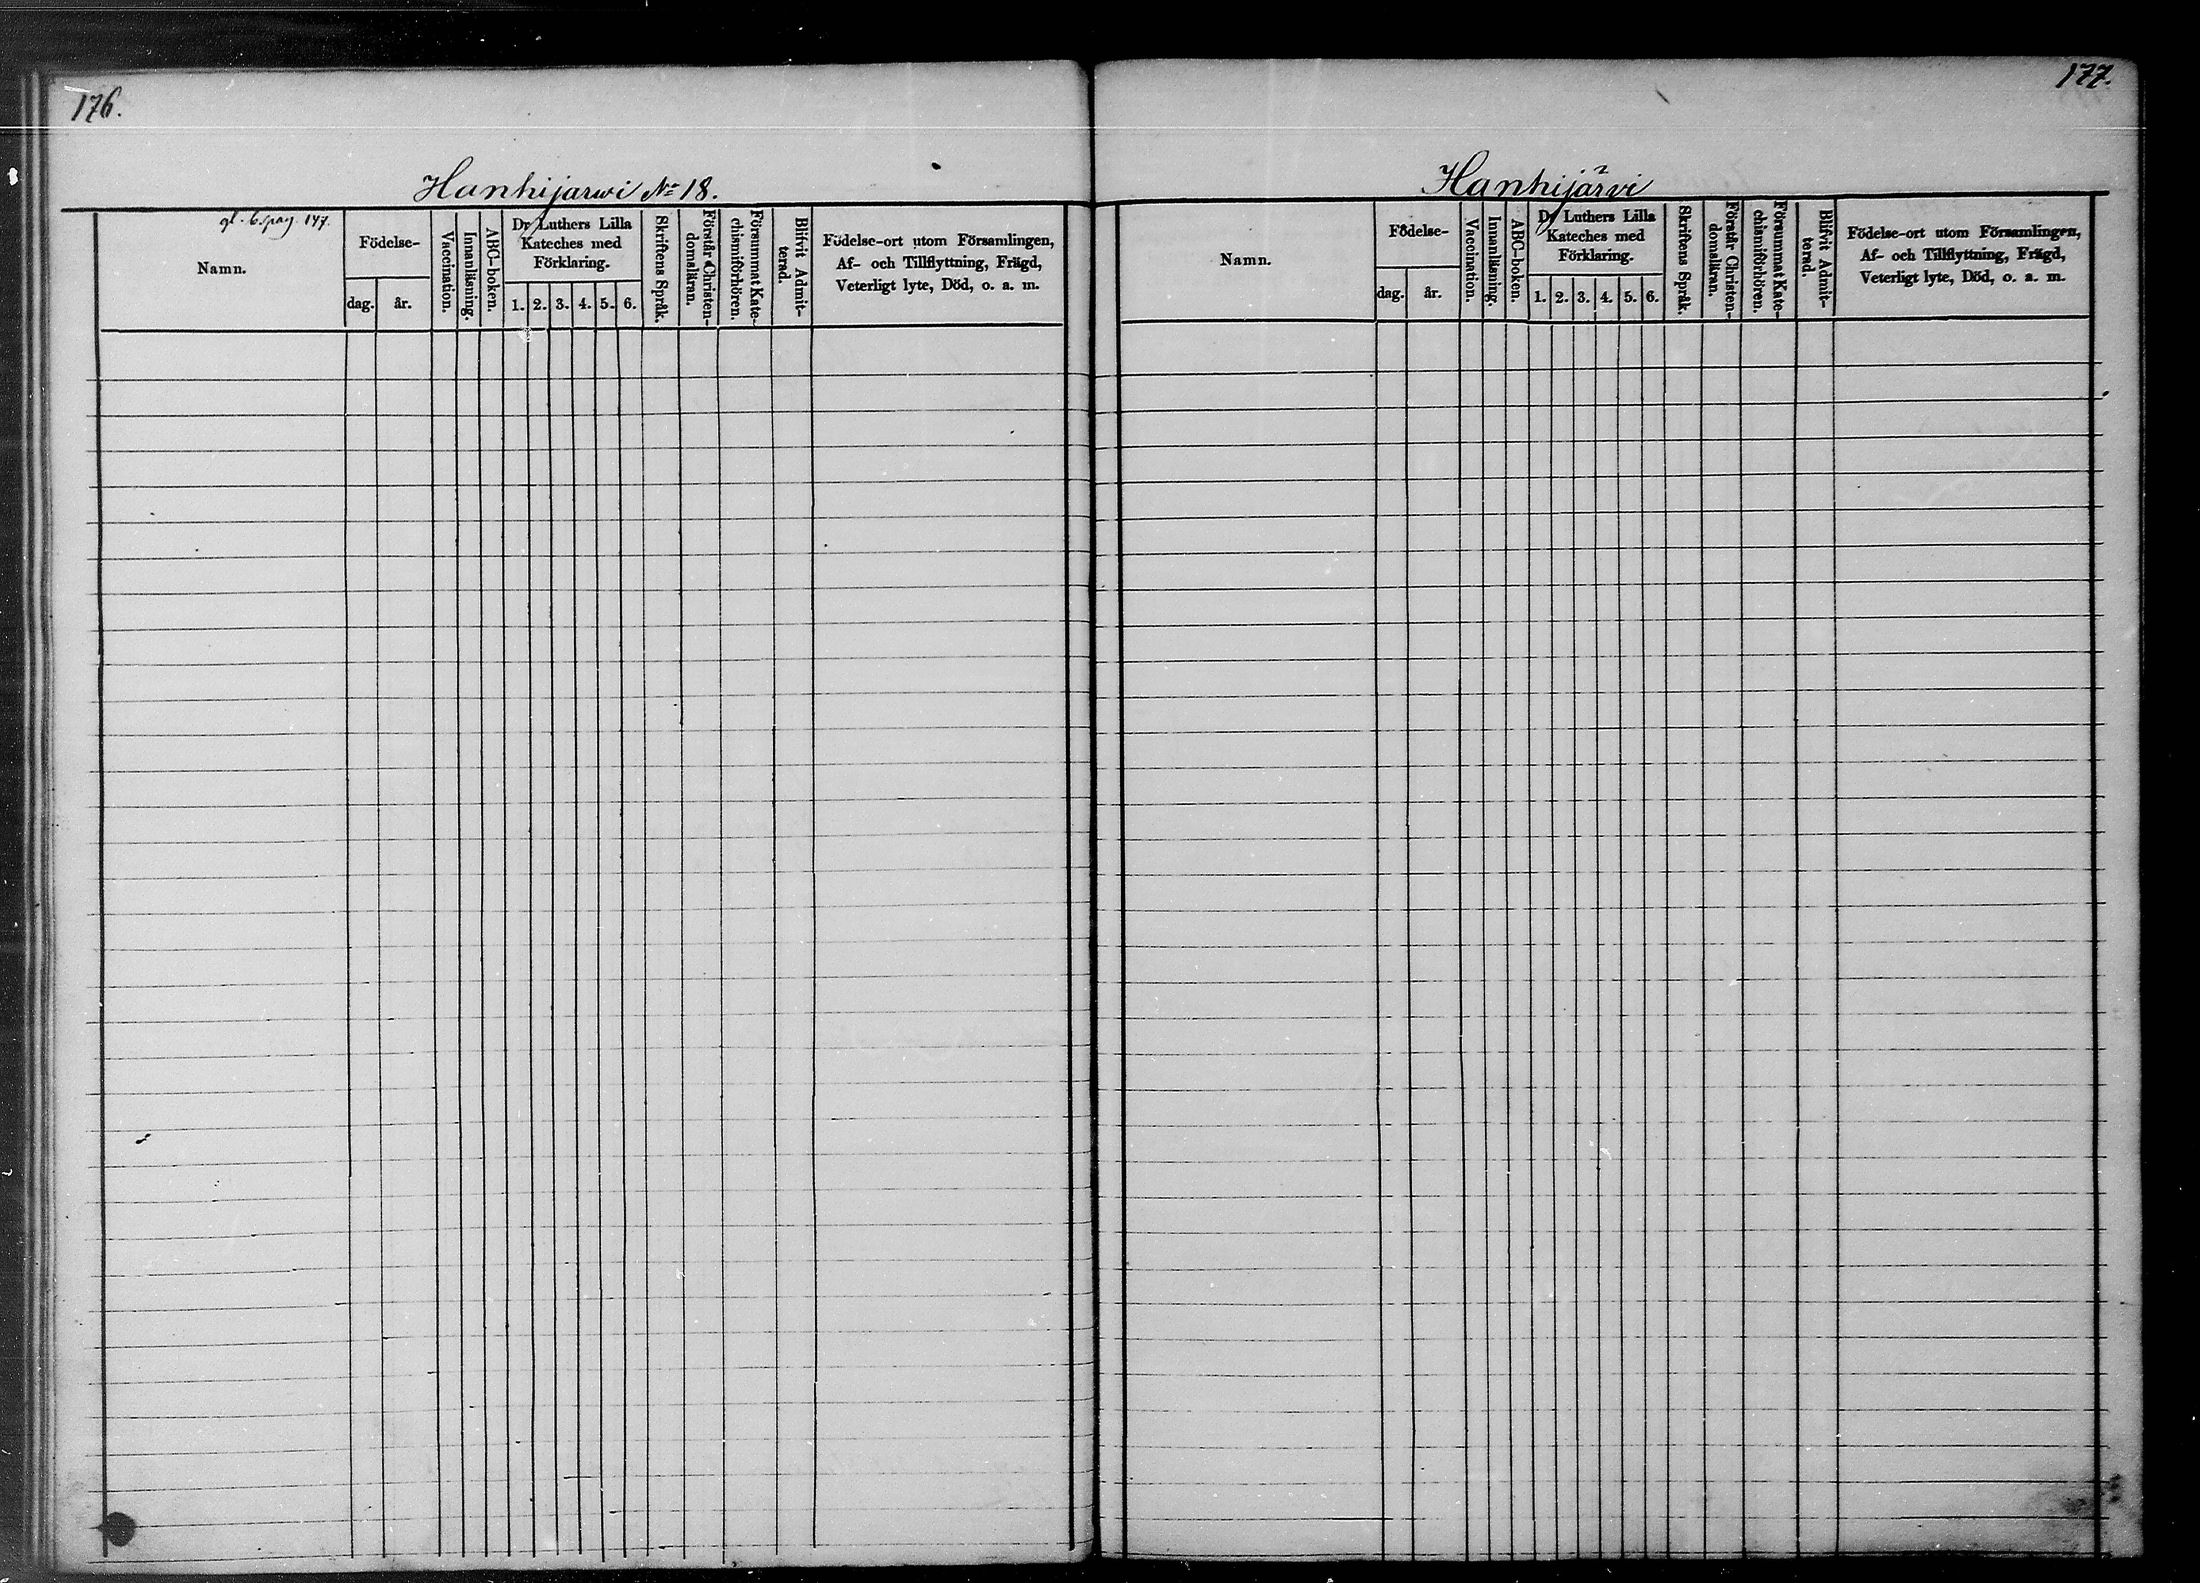 176.
Hanhijarwi No 18.
gl. b. pag. 147.
Namn.
Födelse-
dag.
år.
Vaccination.
Innanläsning.
ABC-boken.
Dr Luthers Lilla
Kateches med
Förklaring.
1. 2. 3. 4. 5. 6.
Skriftens Språk.
Förstår Christen-
domsläran.
Försummat Kate-
chismiförhören.
Blifvit Admit-
terad.
Födelse-ort utom Församlingen,
Af- och Tillflyttning, Frägd,
Veterligt lyte, Död, o. a. m.
177.
Hanhijärvi
Namn.
Födelse-
dag.
år.
Vaccination.
Innanläsning.
ABC-boken.
Dr Luthers Lilla
Kateches med
Förklaring.
1. 2. 3. 4. 5. 6.
Skriftens Språk.
Förstår Christen-
domsläran.
Försummat Kate-
chismiförhören.
Blifvit Admit-
terad.
Födelse-ort utom Församlingen,
Af- och Tillflyttning, Frägd,
Veterligt lyte, Död, o. a. m.